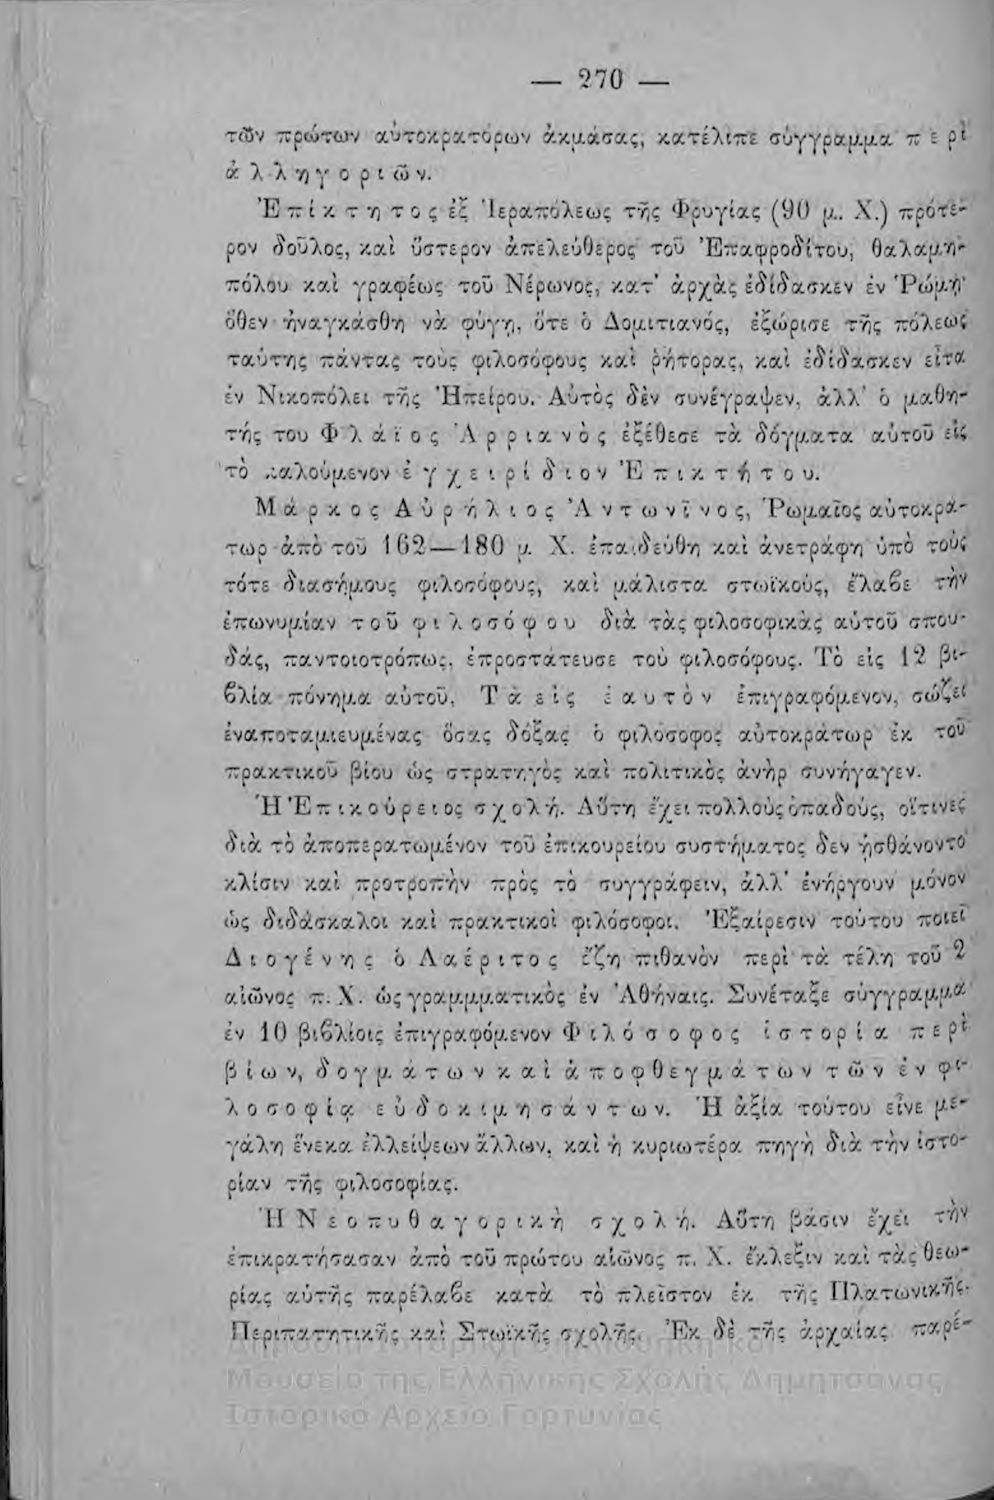 — 270 —
τῶν πρώτων αὐτοκρατόρων ἀκμάσας, κατέλιπε σύγγραμμα π ε ρὶ
ἀ λ λ η γ ο ρ ι ῶ ν.
Ἐ π ί κ τ η τ ο ς ἐξ Ἱεραπόλεως τῆς Φρυγίας (90 μ. Χ.) πρότε-
ρον δοῦλος, καὶ ὕστερον ἀπελεύθερος τοῦ Ἐπαφροδίτου, θαλαμη-
πόλου καὶ γραφέως τοῦ Νέρωνος, κατ' ἀρχὰς ἐδίδασκεν ἐν Ῥώμῃ·
ὅθεν ἠναγκάσθη νὰ φύγῃ, ὅτε ὁ Δομιτιανός, ἐξώρισε τῆς πόλεως
ταύτης πάντας τοὺς φιλοσόφους καὶ ῥήτορας, καὶ ἐδίδασκεν εἶτα
ἐν Νικοπόλει τῆς Ἠπείρου. Αὐτὸς δὲν συνέγραψεν, ἀλλ' ὁ μαθη-
τής του Φ λ ά ϊ ο ς Ἀ ρ ρ ι α ν ὸ ς ἐξέθεσε τὰ δόγματα αὐτοῦ εἰς
τὸ καλούμενον ἐ γ χ ε ι ρ ί δ ι ο ν Ἐ π ι κ τ ή τ ο υ.
Μ ά ρ κ ο ς Α ὐ ρ ή λ ι ο ς Ἀ ν τ ω ν ῖ ν ο ς, Ῥωμαῖος αὐτοκρά-
τωρ ἀπὸ τοῦ 162—180 μ Χ. ἐπαιδεύθη καὶ ἀνετράφη ὑπὸ τοὺς
τότε διασήμους φιλοσόφους, καὶ μάλιστα στωϊκούς, ἔλαβε τὴν
ἐπωνυμίαν τ ο ῦ φ ι λ ο σ ό φ ο υ διὰ τὰς φιλοσοφικὰς αὐτοῦ σπου-
δάς, παντοιοτρόπως, ἐπροστάτευσε τοὺ φιλοσόφους. Τὸ εἰς 12 βι-
βλία πόνημα αὐτοῦ, Τ ὰ ε ἰ ς ἑ α υ τ ὸ ν ἐπιγραφόμενον, σώζει
ἐναποταμιευμένας ὅσας δόξας ὁ φιλόσοφος αὐτοκράτωρ ἐκ τοῦ
πρακτικοῦ βίου ὡς στρατηγὸς καὶ πολιτικὸς ἀνὴρ συνήγαγεν.
Ἡ Ἐ π ι κ ο ύ ρ ε ι ο ς σ χ ο λ ή. Αὕτη ἔχει πολλοὺς ὀπαδούς, οἵτινες
διὰ τὸ ἀποπερατωμένον τοῦ ἐπικουρείου συστήματος δεν ᾐσθάνοντο
κλίσιν καὶ προτροπὴν πρὸς τὸ συγγράφειν, ἀλλ' ἐνήργουν μόνον
ὡς διδάσκαλοι καὶ πρακτικοὶ φιλόσοφοι. Ἐξαίρεσιν τούτου ποιεῖ
Δ ι ο γ έ ν η ς ὁ Λ α έ ρ ι τ ο ς ἔζη πιθανὸν περὶ τὰ τέλη τοῦ 2
αἰῶνος π. Χ. ὡς γραμμματικὸς ἐν Ἀθήναις. Συνέταξε σύγγραμμα
ἐν 10 βιβλίοις ἐπιγραφόμενον Φ ι λ ό σ ο φ ο ς ἱ σ τ ο ρ ί α π ε ρ ὶ
β ί ω ν, δ ο γ μ ά τ ω ν κ α ὶ ἀ π ο φ θ ε γ μ ά τ ω ν τ ῶ ν ἐ ν φ ι-
λ ο σ ο φ ί ᾳ ε ὐ δ ο κ ι μ η σ ά ν τ ω ν. Ἡ ἀξία τούτου εἶνε με-
γάλη ἕνεκα ἐλλείψεων ἄλλων, καὶ ἡ κυριωτέρα πηγὴ διὰ τὴν ἱστο-
ρίαν τῆς φιλοσοφίας.
Ἡ Ν ε ο π υ θ α γ ο ρ ι κ ὴ σ χ ο λ ή. Αὕτη βάσιν ἔχει τὴν
ἐπικρατήσασαν ἀπὸ τοῦ πρώτου αἰῶνος π. Χ. ἔκλεξιν καὶ τὰς θεω-
ρίας αὐτῆς παρέλαβε κατὰ τὸ πλεῖστον ἐκ τῆς Πλατωνικῆς·
Περιπατητικῆς καὶ Στωϊκῆς σχολῆς. Ἐκ δὲ τῆς ἀρχαίας παρέ-
Δημόσια Ιστορική Βιβλιοθήκη και
Μουσείο της Ελληνικής Σχολής Δημητσάνας
Ιστορικό Αρχείο Γορτυνίας